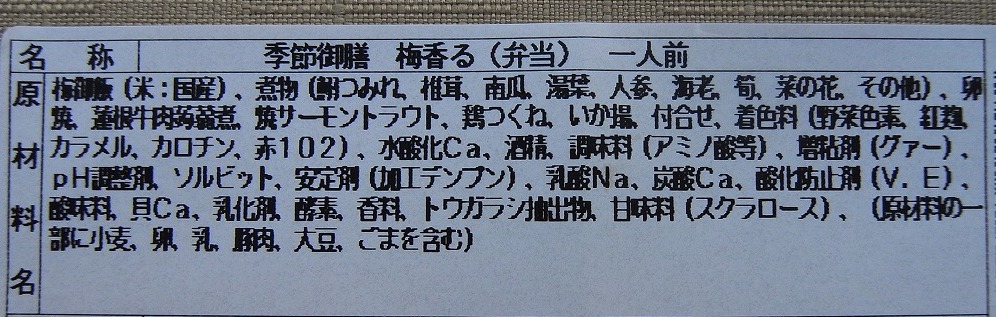 名称 季節御膳 梅香る（弁当） 一人前
原材料名
梅御飯（米：国産）、煮物（鯛つみれ、椎茸、南瓜、湯葉、人参、海老、筍、菜の花、その他）、卵
焼、蓮根牛肉蒟蒻煮、焼サーモントラウト、鶏つくね、いか揚、付合せ、着色料（野菜色素、紅麹、
カラメル、カロチン、赤102）、水酸化Ca、酒精、調味料（アミノ酸等）、増粘剤（グァー）、
pH調整剤、ソルビット、安定剤（加工デンプン）、乳酸Na、炭酸Ca、酸化防止剤（V．E）、
酸味料、貝Ca、乳化剤、酵素、香料、トウガラシ抽出物、甘味料（スクラロース）、（原材料の一
部に小麦、卵、乳、豚肉、大豆、ごまを含む）